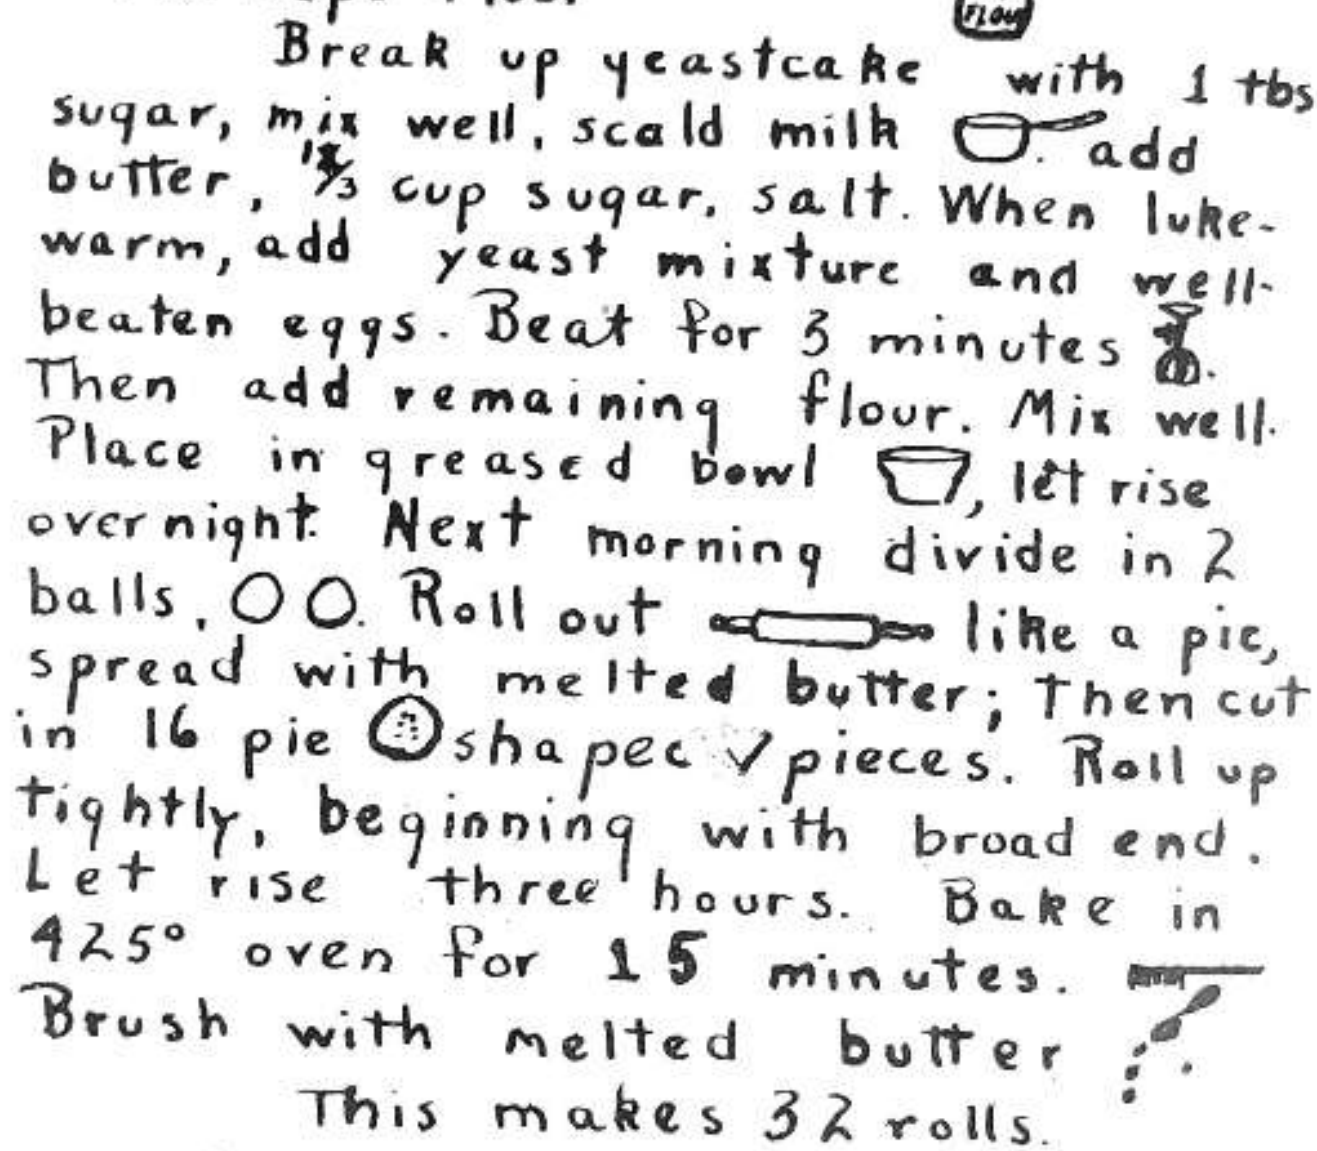 FLOUR
Break up yeastcake with 1 tbs
sugar, mix well, scald milk . add
butter, 1/3 cup sugar, salt. When luke-
warm, add yeast mixture and well-
beaten eggs. Beat for 3 minutes .
Then add remaining flour. Mix well.
Place in greased bowl , let rise
overnight. Next morning divide in 2
balls, . Roll out like a pie,
spread with melted butter; Then cut
in 16 pie shaped pieces. Roll up
tightly, beginning with broad end.
Let rise three hours. Bake in
425° oven for 15 minutes.
Brush with melted butter
This makes 32 rolls.